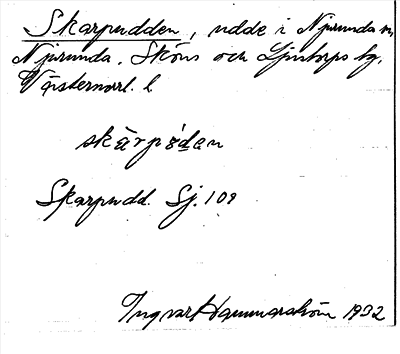 Skarpudden, udde i Njurunda sn,
Njurunda, Sköns och Ljustorps tg,
Västernorrl. l
skàrpúden
Skarpudd. Sj. 109
Ingvar Hammarström 1932